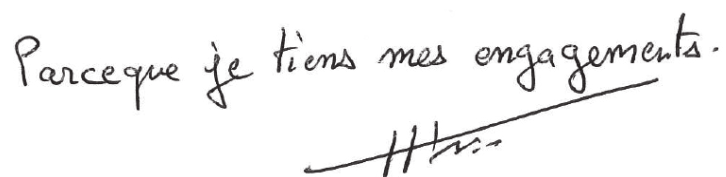 Parceque je tiens mes engagements.